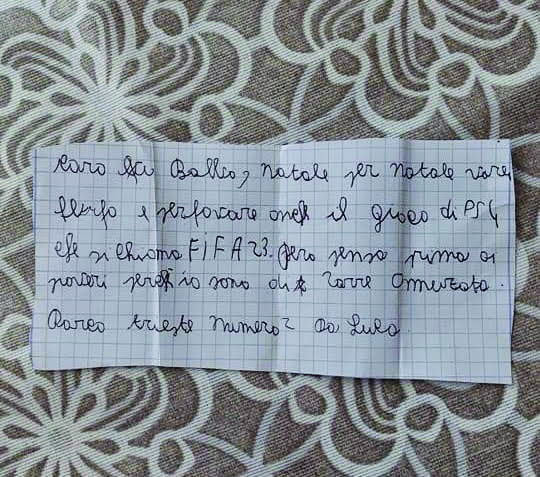 caro Balleo, natale per natale vorrei
e per favore anche il gioco di PS4
che si chiama FIFA 23. però pensa prima ai
poveri perché io sono di Torre Annunzata.
Parco trieste numero 2 Da Luca.